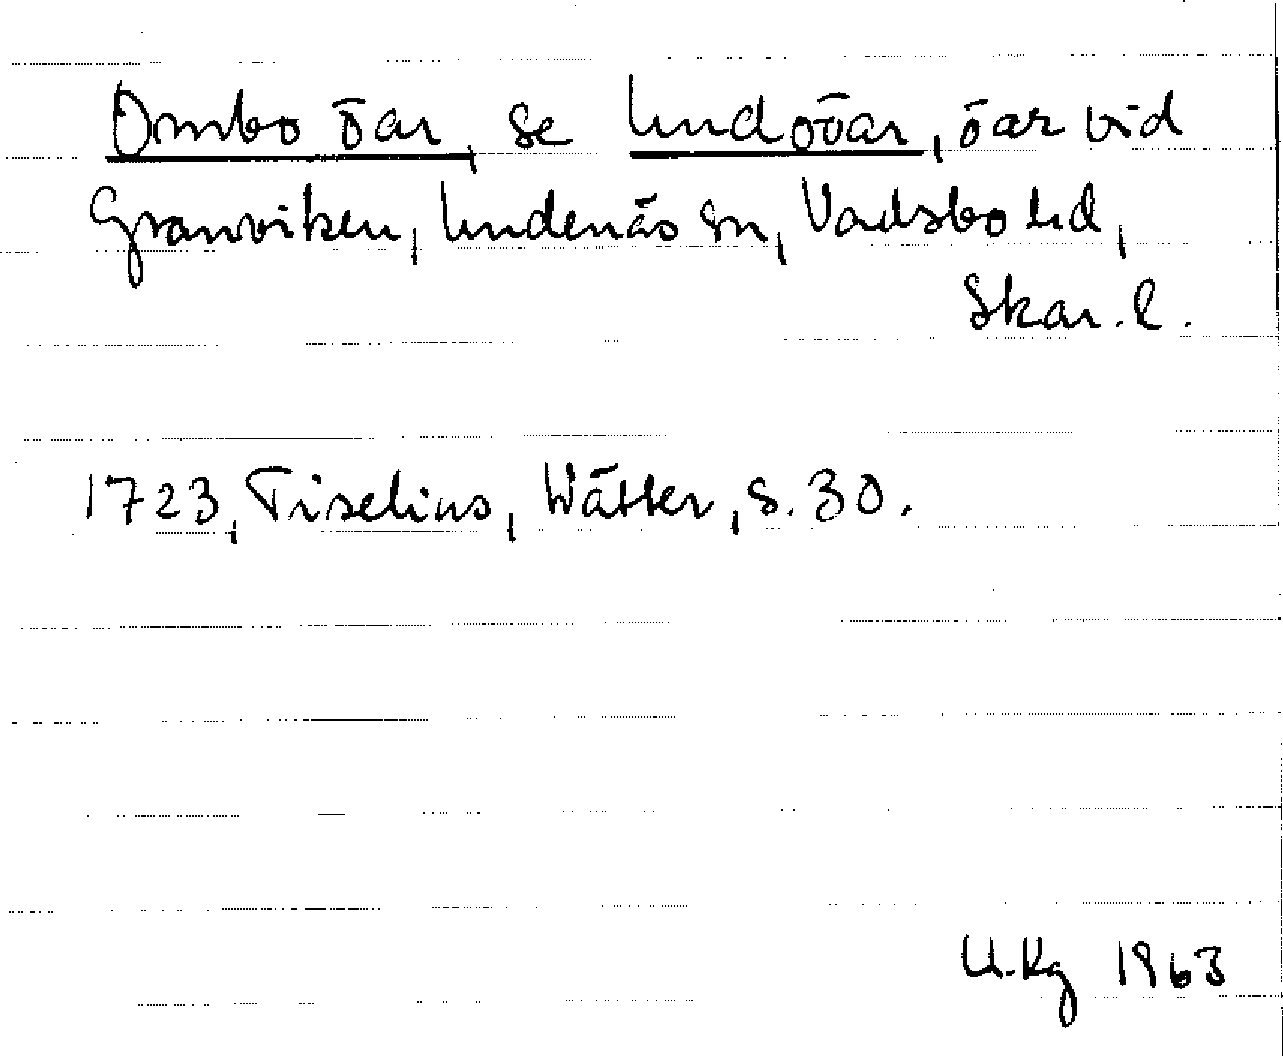 Ombo öar, se Undööar, öar vid
Granviken, Undenäs sn, Vadsbo hd,
Skar. l.
1723, Tiselius, Wätter, s. 30.
U.Kg 1963